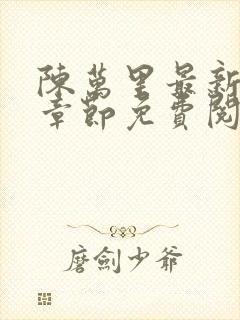 陳萬里最新
章節免費閱
磨劍少爺